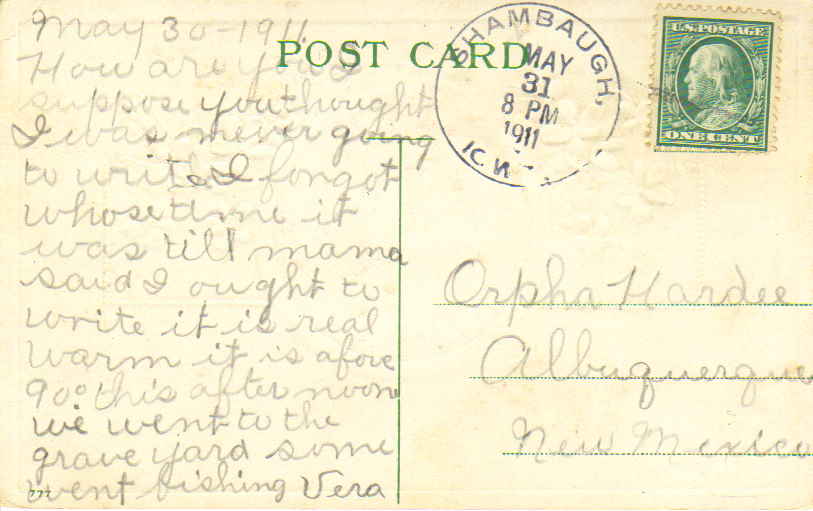 May 30-1911
How are you I
suppose you thought
I was never going
to write I forgot
whose time it
was till mama
said I ought to
write it is real
warm it is afore
90° this after noon
we went to the
grave yard some
went fishing Vera
777
POST CARD
SHAMBAUGH,
MAY
31
8 PM
1911
U.S. POSTAGE
ONE CENT
Orpha Hardee
Albuquerque
New Mexico